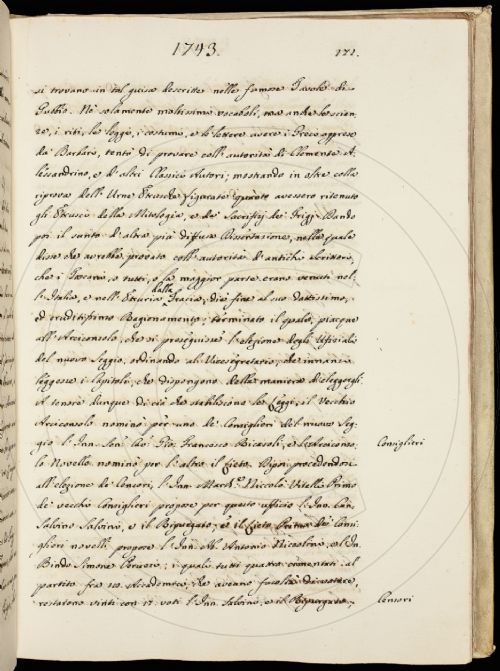 1743.
171.
si trovano in tal guisa descritte nelle famose Tavole di
Gubbio. Nè solamente moltissimi vocaboli, ma anche le scien-
ze, i riti, le leggi, i costumi, e le lettere avere i Greci appreso
da' Barbari, tentò di provare coll' autorità di Clemente A-
lessandrino, e d' altri Classici Autori; mostrando in oltre colla
riprova dell' Urne Etrusche figurate quanto avessero ritenuto
gli Etrusci della Mitologia, e de' Sacrifizj de' Frigj. Dando
poi il sunto d' altra più diffusa Dissertazione, nella quale
disse che avrebbe provato coll' autorità d' antichi Scrittori,
che i Toscani, o tutti, o la maggior parte erano venuti nel-
l' Italia, e nell' Etruria dalla Tracia, diè fine al suo dottissimo,
ed eruditissimo Ragionamento; terminato il quale, piacque
all' Arciconsolo, che si proseguisse l' elezione degli Ufiziali
del nuovo Seggio, ordinando al Vicesegretario, che innanzi
leggesse i Capitoli, che dispongono della maniera d' eleggergli.
A tenore dunque di ciò che stabiliscono le Leggi, il Vecchio
Arciconsolo nominò per uno de' Consiglieri del nuovo Seg-
gio l' Inn. Gio. Francesco Ricasoli, e l' Arciconso-
lo Novello nominò per l' altro il Cieto. Dipoi procedendosi
all' elezione de' Censori, l' Inn. March.e Niccolò Vitelli Primo
de' vecchi Consiglieri propose per questo ufizio l' Inn. Can.
Salvino Salvini, e il Ripurgato, e il Cieto Primo de' Consi-
glieri novelli propose l' Inn. Ab. Antonio Niccolini, e l' In.
Bindo Simone Peruzzi; i quali tutti quattro cimentati al
partito fra 20. Accademici, che aveano facoltà di votare,
restarono vinti con 17. voti l' Inn. Salvini, e il Ripurgato,
Consiglieri
Censori